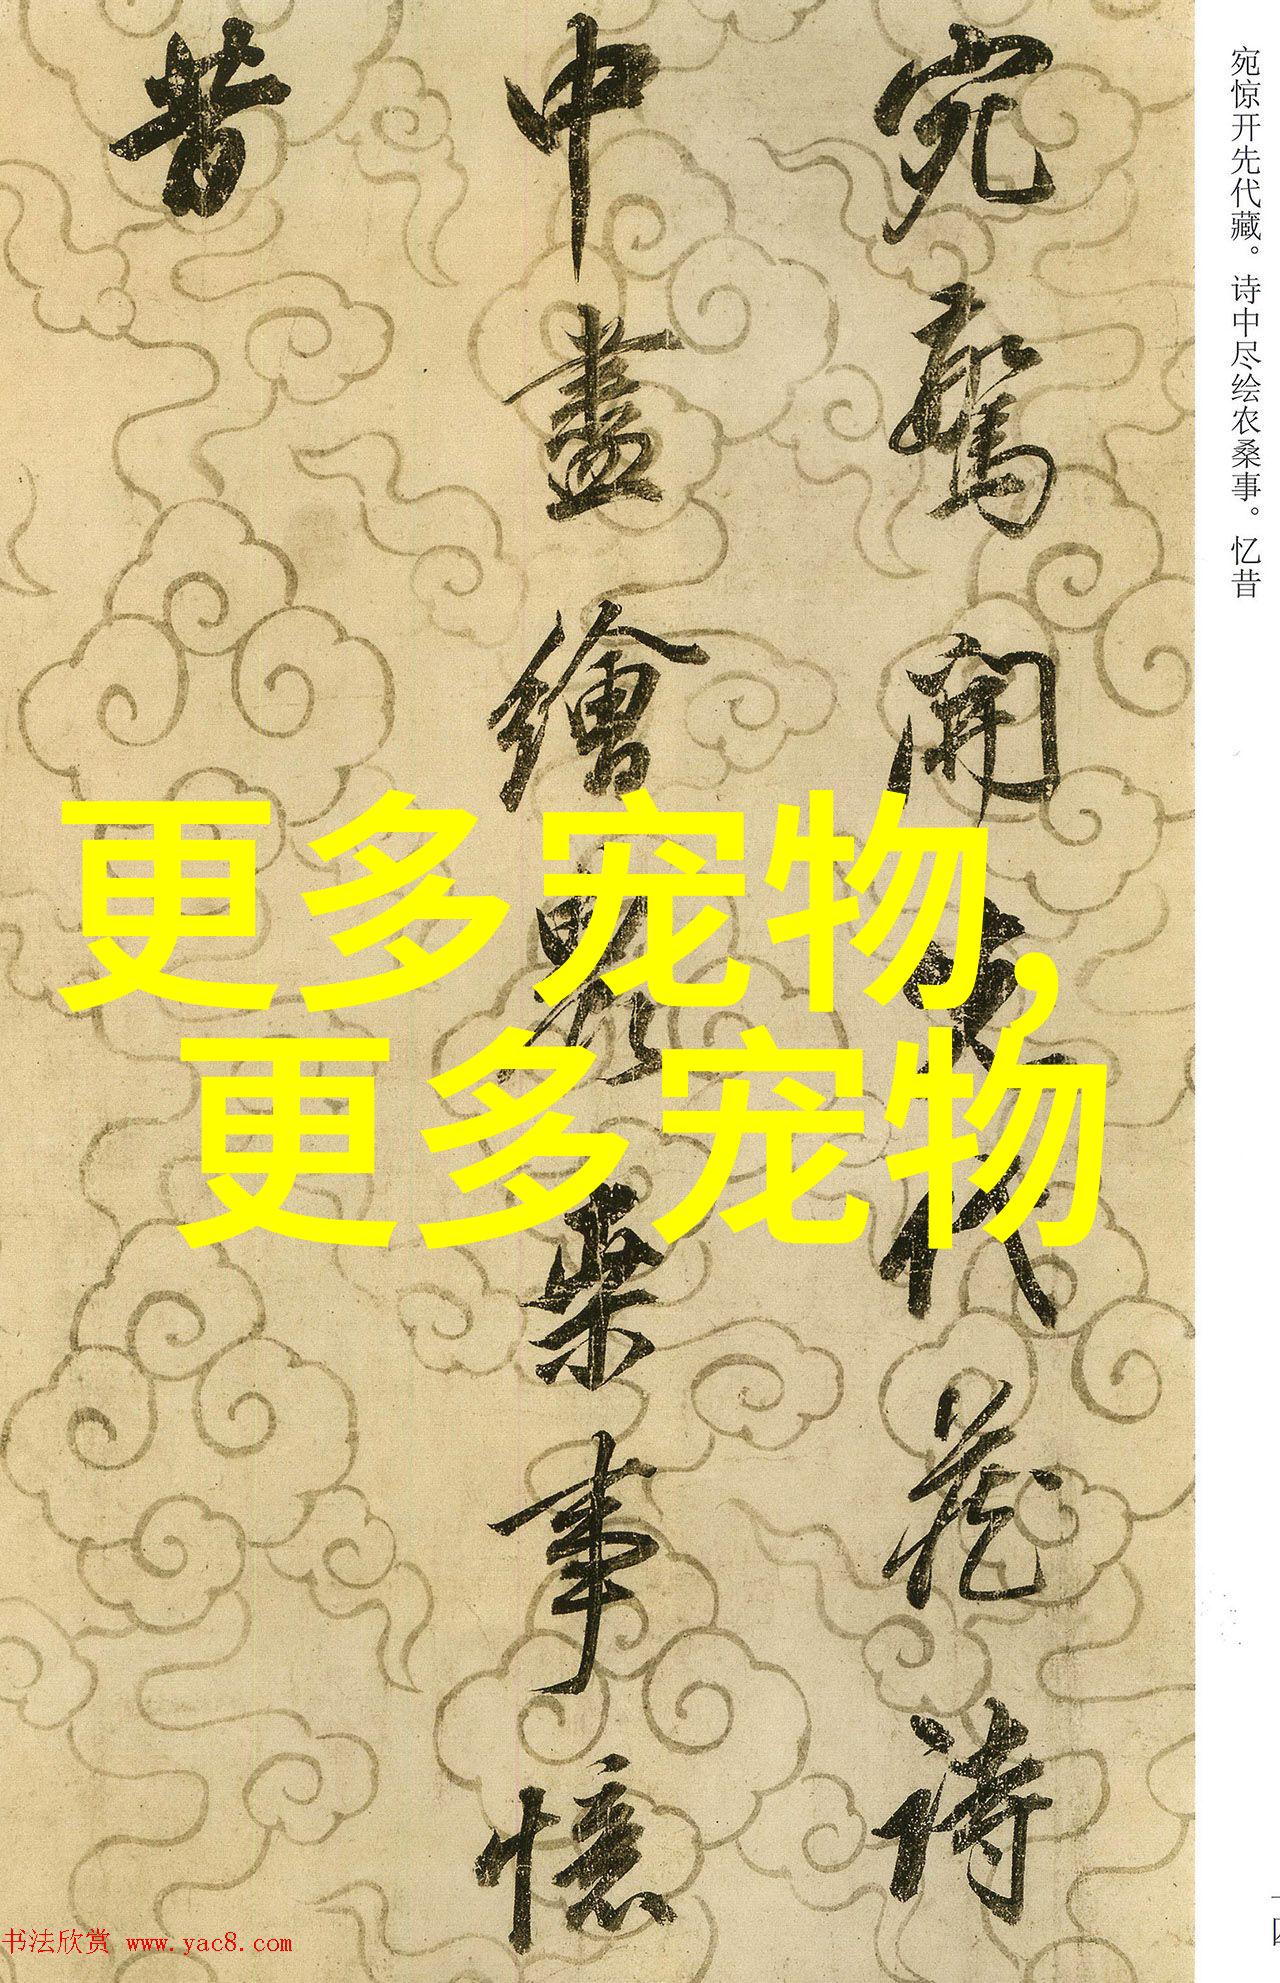 宛惊开先代藏。诗中尽绘农桑事。忆昔
宛驚開先代藏詩
中盡繪農桑事憶
昔
更多宠物,
更多宠物
书法欣赏 www.yac8.com